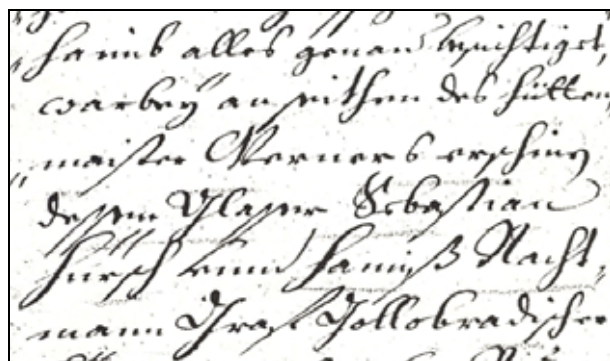 hannß alles genau besichtiget,
warbey an seithen des hütten
maister Werners erschiny
dessen Glaser Sebastian
hürsch vnnd hannß Nacht,
mann Graf Gollobradischer